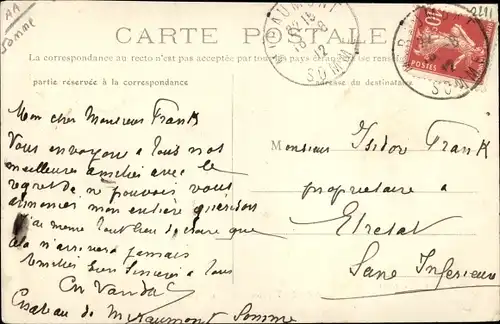 AA
Somme
CARTE POSTALE
La correspondance au recto n'est pas acceptée par tous pays étrangers
partie réservée à la correspondance
adresse du destinataire
MIRAUMONT
12
SOMME
10
POSTES
SOMME
Mon cher Monsieur Frank
Vous envoyons à tous nos
meilleures amitiés avec le
regret de ne pouvoir vous
annoncer mon entière guérison
j'ai même tout lieu de croire que
cela n'arrivera jamais
Amitiés bien sincères à tous
Chateau de Miraumont Somme
Monsieur Isidor Frank
propriétaire à
Etretat
Seine Inférieure